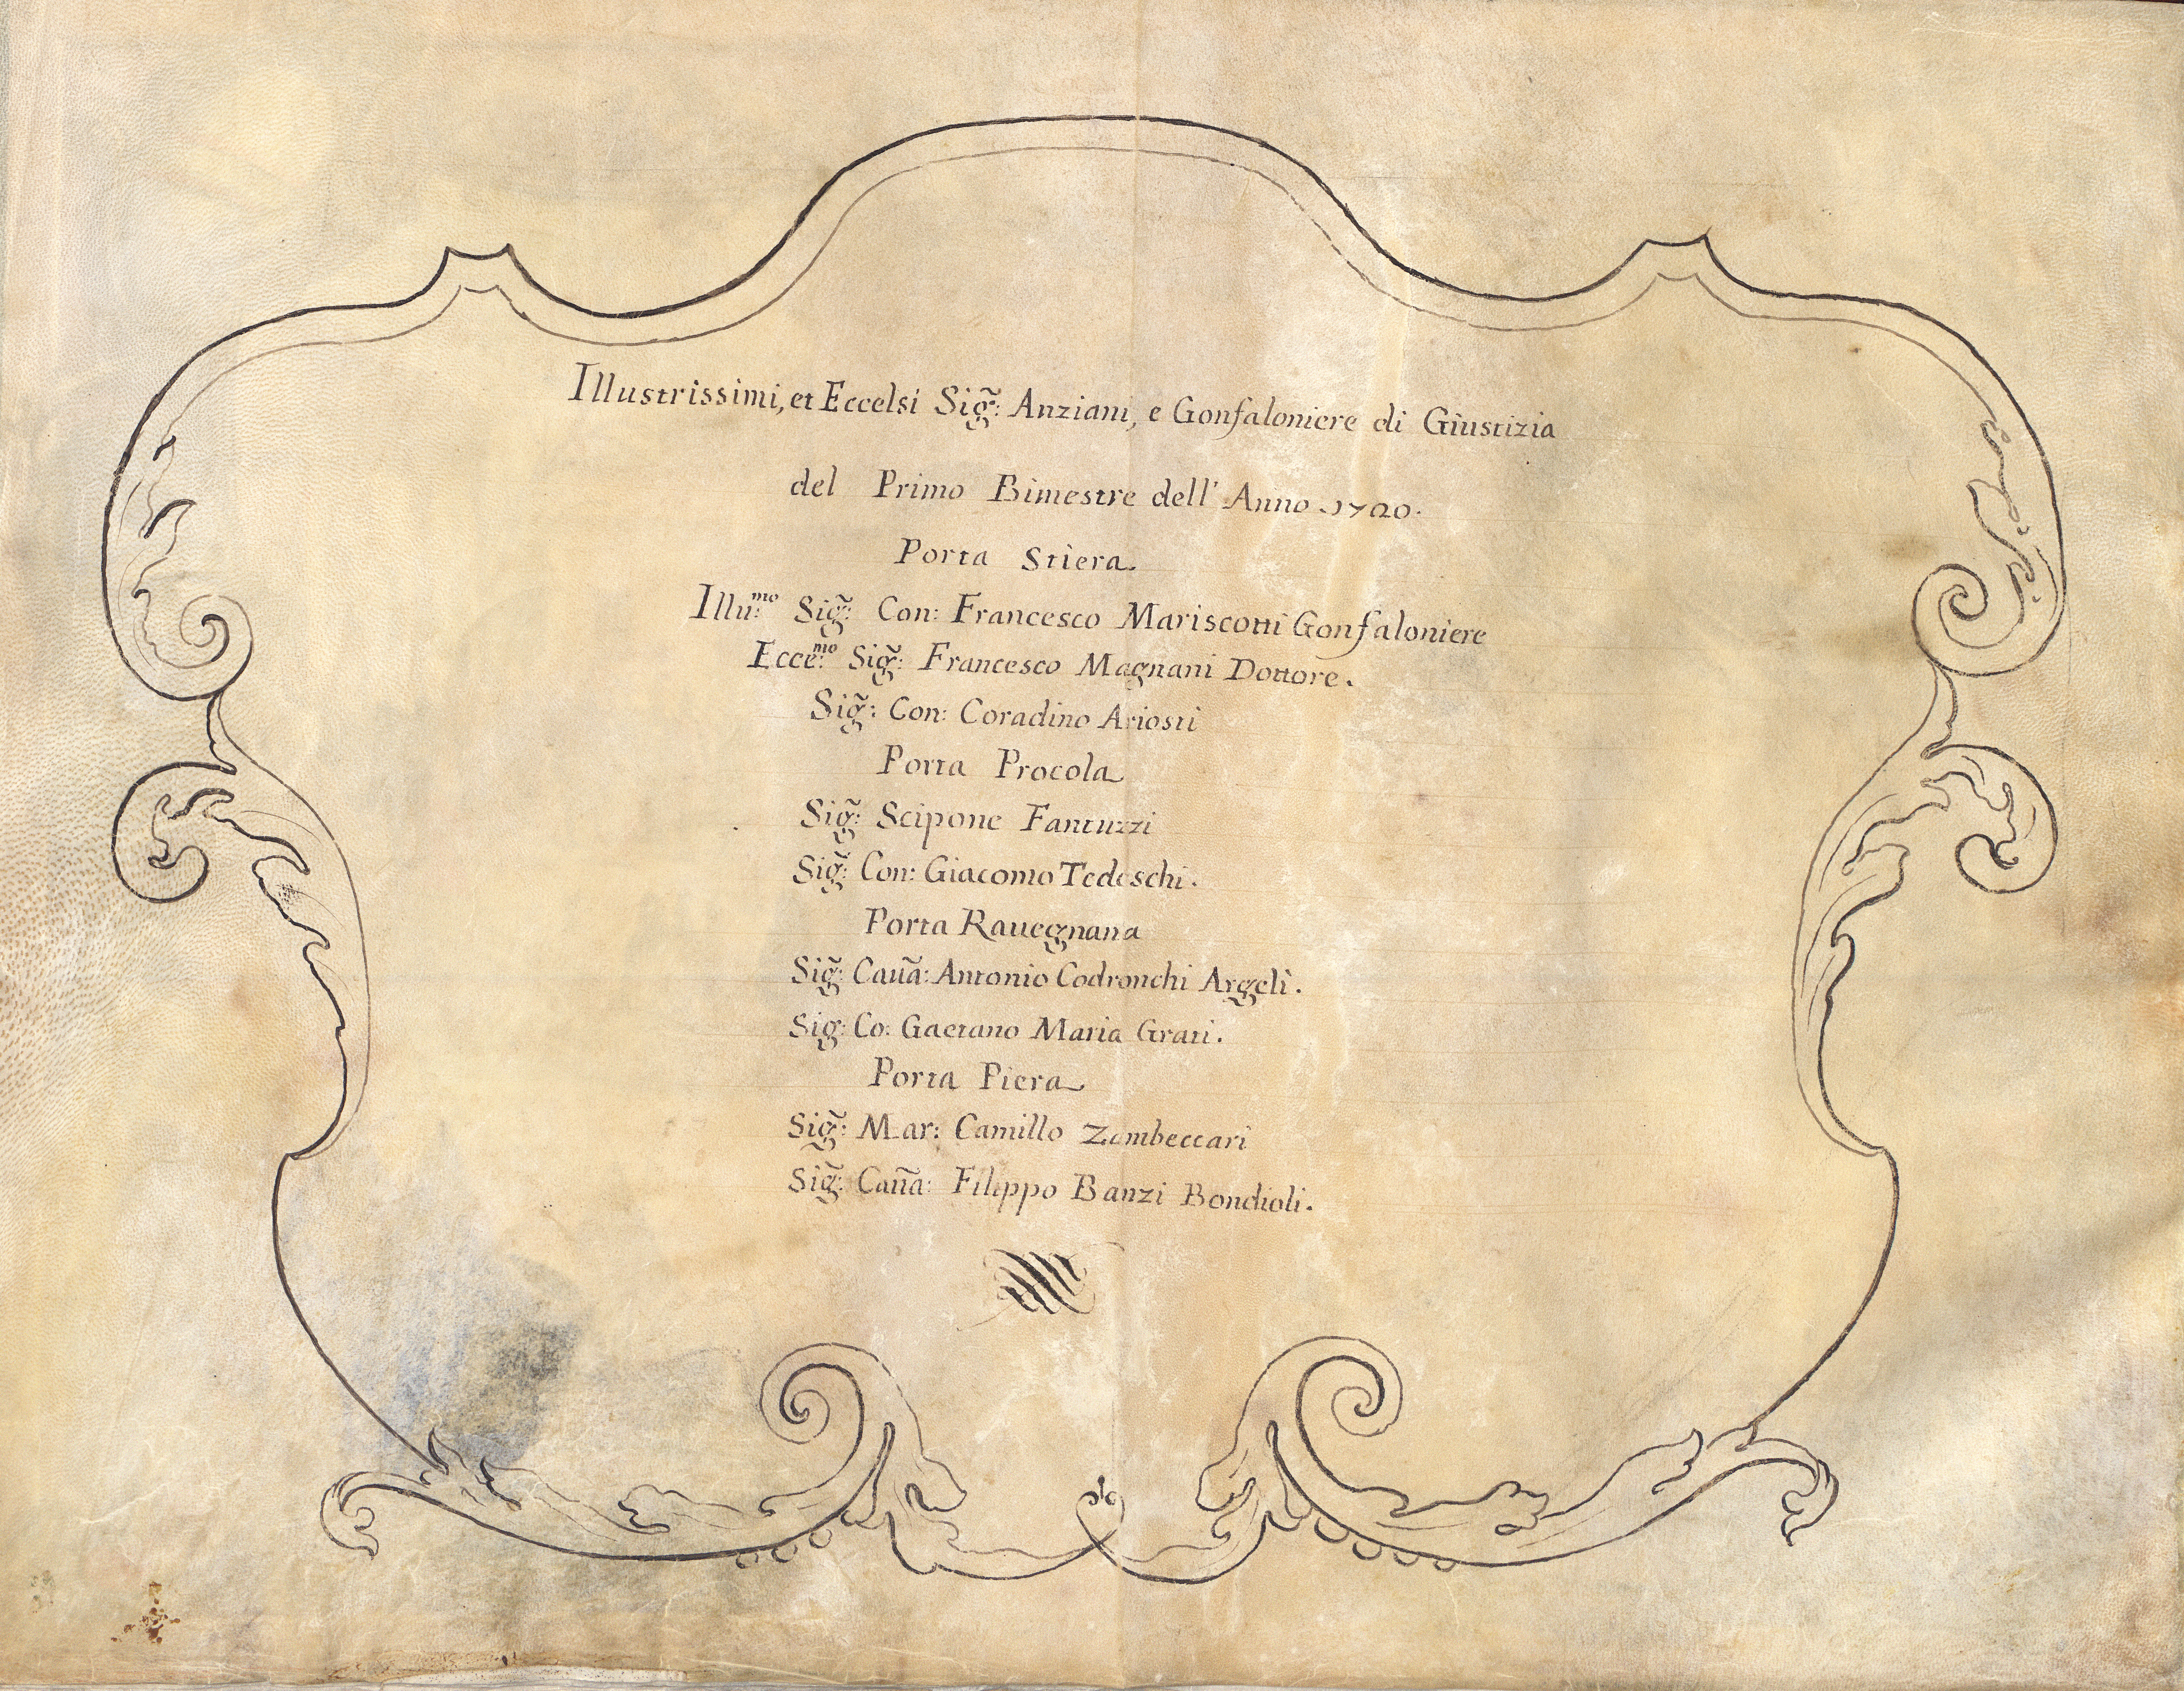 Illustrissimi, et Eccelsi Sig̃: Anziani, e Gonfaloniere di Giustizia
del Primo Bimestre dell' Anno .1720.
Porta Stiera.
Illu:ᵐᵒ Sig̃: Con: Francesco Mariscotti Gonfaloniere
Ecce:ᵐᵒ Sig̃: Francesco Magnani Dottore.
Sig̃: Con: Coradino Ariosti
Porta Procola
Sig̃: Scipone Fantuzzi
Sig̃: Con: Giacomo Tedeschi.
Porta Rauegnana
Sig̃: Cauã: Antonio Codronchi Argeli.
Sig: Co: Gaetano Maria Grati.
Porta Piera
Sig̃: Mar: Camillo Zambeccari
Sig̃: Cauã: Filippo Banzi Bondioli.